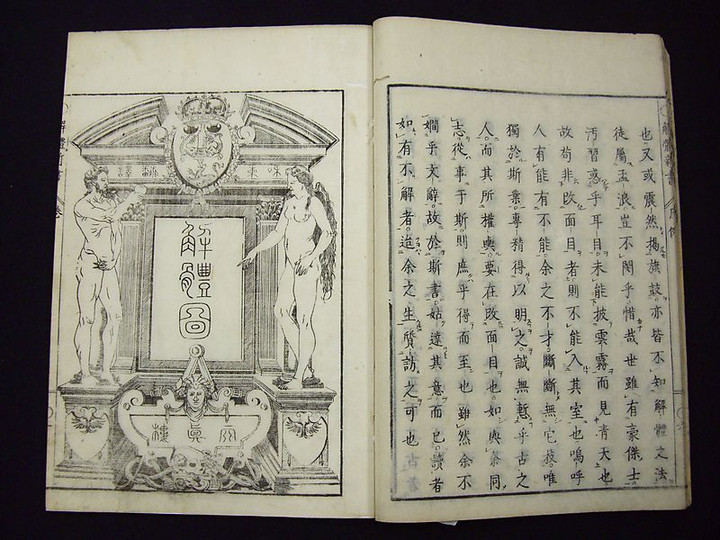 也又或震然揚旗鼓。亦皆不知解體之法
徒屬孟浪。豈不閔乎。惜哉世雖有豪傑士。
汚習惑乎耳目。未能披雲霧而見青天也。
故苟非改面目者。則不能入其室也。嗚呼
人有能有不能。余之不才。斷斷無它技。唯
獨於斯業。專精得以明之。誠無慙乎古之
人。而其所權輿。要在改面目也。如與余同
志。從事于斯。則庶乎得而至也。雖然余不
嫺乎文辭。故於斯書。姑達其意而已。讀者
如有不解者。迨余之生質訪之可也
東翻譯
解體圖
天真樓